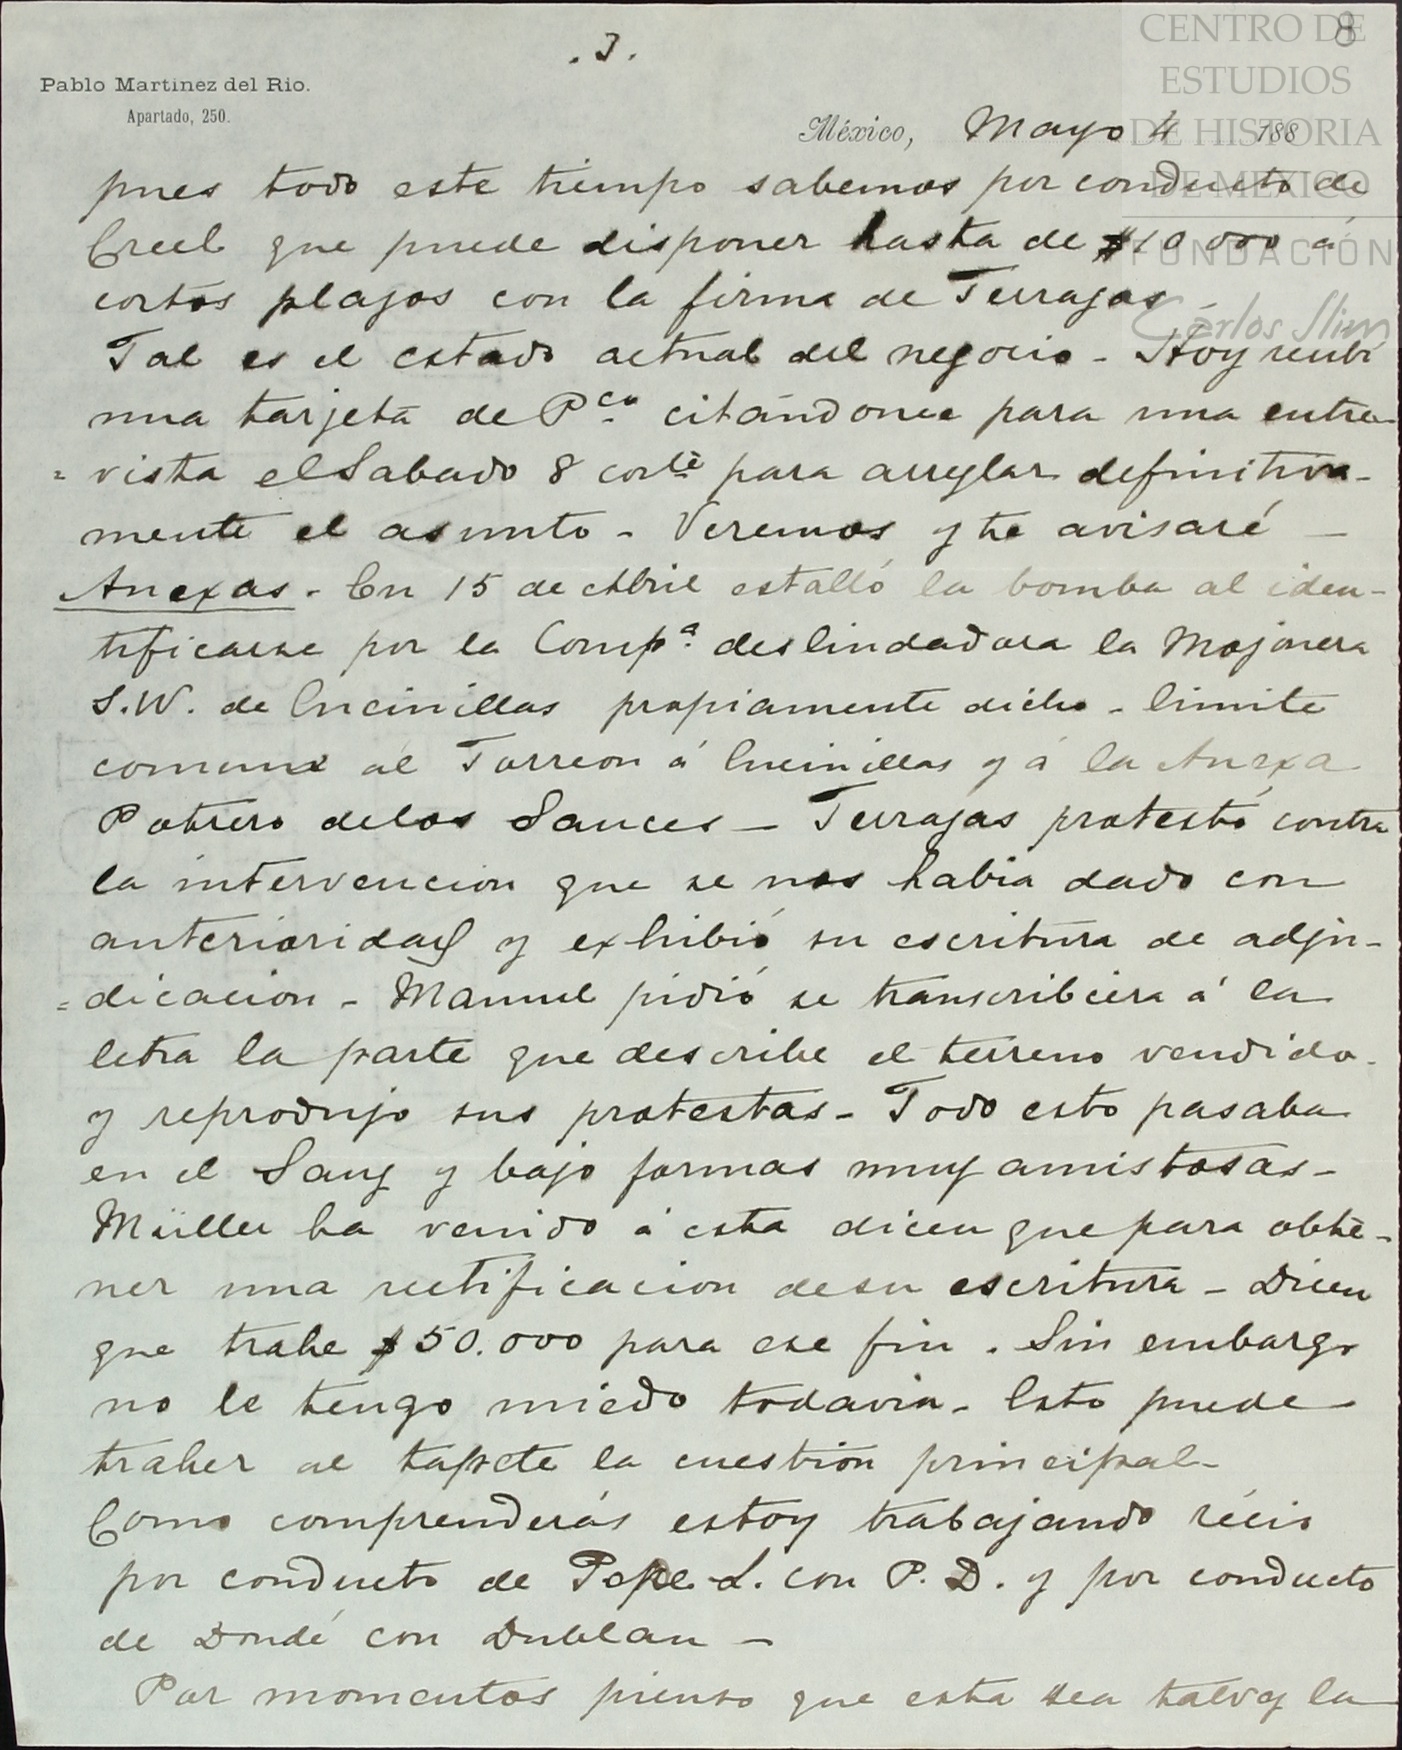 8
.3.
CENTRO DE
ESTUDIOS
DE HISTORIA
DE MEXICO
FUNDACIÓN
Carlos Slim
Pablo Martinez del Rio.
Apartado, 250.
México, Mayo 4 188
pues todo este tiempo sabemos por conducto de
Creel que puede disponer hasta de $10 000 á
cortos plazos con la firma de Terrazas
Tal es el estado actual del negocio - Hoy recibí
una tarjeta de Pco. citándome para una entre-
=vista el Sabado 8 corte para arreglar definitiva-
mente el asunto - Veremos y te avisaré -
Anexas - En 15 de Abril estalló la bomba al iden-
tificarse por la Compa. deslindadora la Mojonera
S.W. de Encinillas propiamente dicho - limite
comun al Torreon á Encinillas y á la Anexa
Potrero de los Sauces - Terrazas protestó contra
la intervencion que se nos habia dado con
anterioridad y exhibió su escritura de adju-
=dicacion - Manuel pidió se transcribiera á la
letra la parte que describe el terreno vendido
y reprodujo sus protestas - Todo esto pasaba
en el Sauz y bajo formas muy amistosas -
Müller ha venido á esta dicen que para obte-
ner una rectificacion de su escritura - Dicen
que trahe $50.000 para ese fin. Sin embargo
no le tengo miedo todavia - Esto puede
traher al tapete la cuestion principal -
Como comprenderás estoy trabajando récio
por conducto de Pepe L. con P. D. y por conducto
de Dondé con Dublan -
Por momentos pienso que esta sea talvez la